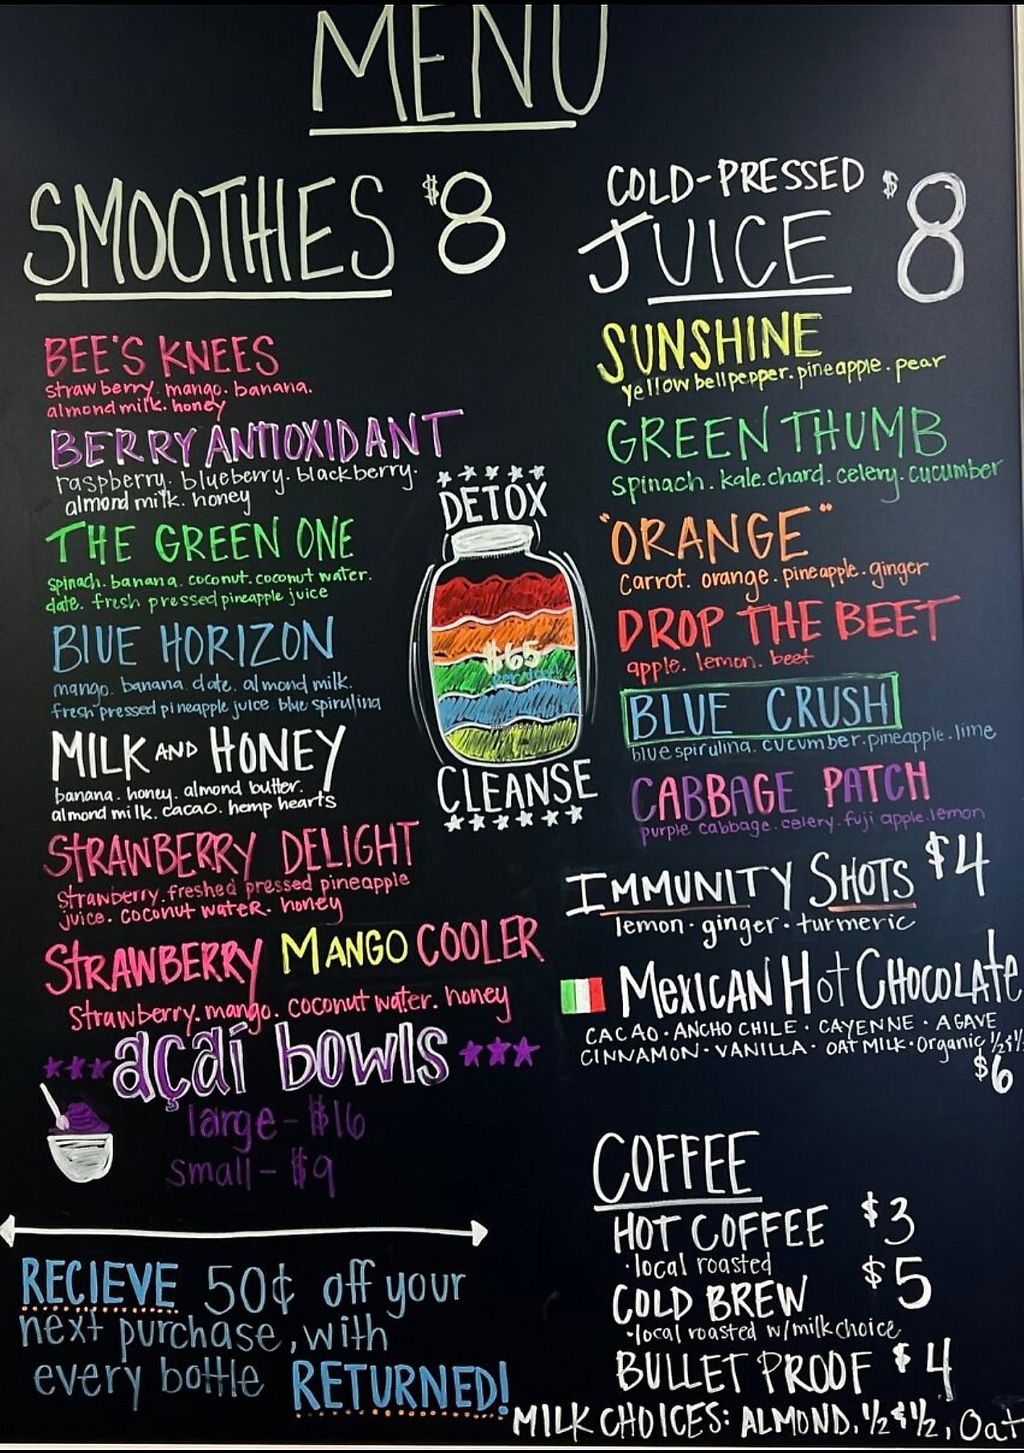 MENU
SMOOTHIES $8
BEE'S KNEES
strawberry. mango. banana.
almond milk. honey
BERRY ANTIOXIDANT
raspberry. blueberry. blackberry.
almond milk. honey
THE GREEN ONE
spinach. banana. coconut. coconut water.
date. fresh pressed pineapple juice
BLUE HORIZON
mango. banana. date. almond milk.
fresh pressed pineapple juice blue spirulina
MILK AND HONEY
banana. honey. almond butter.
almond milk. cacao. hemp hearts
STRAWBERRY DELIGHT
strawberry. freshed pressed pineapple
juice. coconut water. honey
STRAWBERRY MANGO COOLER
Strawberry. mango. coconut water. honey
açaí bowls
large - $16
small - $9
RECIEVE 50¢ off your
next purchase, with
every bottle RETURNED!
DETOX
$65
CLEANSE
COLD-PRESSED
JUICE $8
SUNSHINE
yellow bell pepper. pineapple. pear
GREEN THUMB
spinach. kale. chard. celery. cucumber
"ORANGE"
carrot. orange. pineapple. ginger
DROP THE BEET
apple. lemon. beet
BLUE CRUSH
blue spirulina. cucumber. pineapple. lime
CABBAGE PATCH
purple cabbage. celery. fuji apple. lemon
IMMUNITY SHOTS $4
lemon · ginger · turmeric
MEXICAN Hot CHOCOLATE
CACAO · ANCHO CHILE · CAYENNE · AGAVE
CINNAMON · VANILLA · OAT MILK · Organic ½ & ½
$6
COFFEE
HOT COFFEE $3
· local roasted
COLD BREW $5
· local roasted w/milk choice
BULLET PROOF $4
MILK CHOICES: ALMOND, ½ & ½, Oat